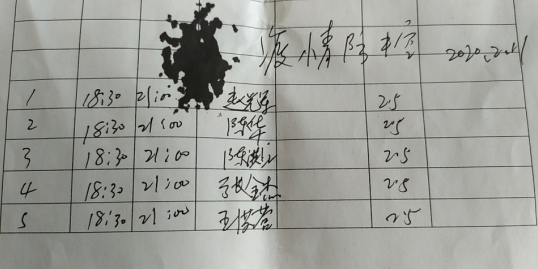 疫情防控 2020.2.11
1 18:30 21:00 2.5
2 18:30 21:00 陈华 2.5
3 18:30 21:00 2.5
4 18:30 21:00 2.5
5 18:30 21:00 2.5